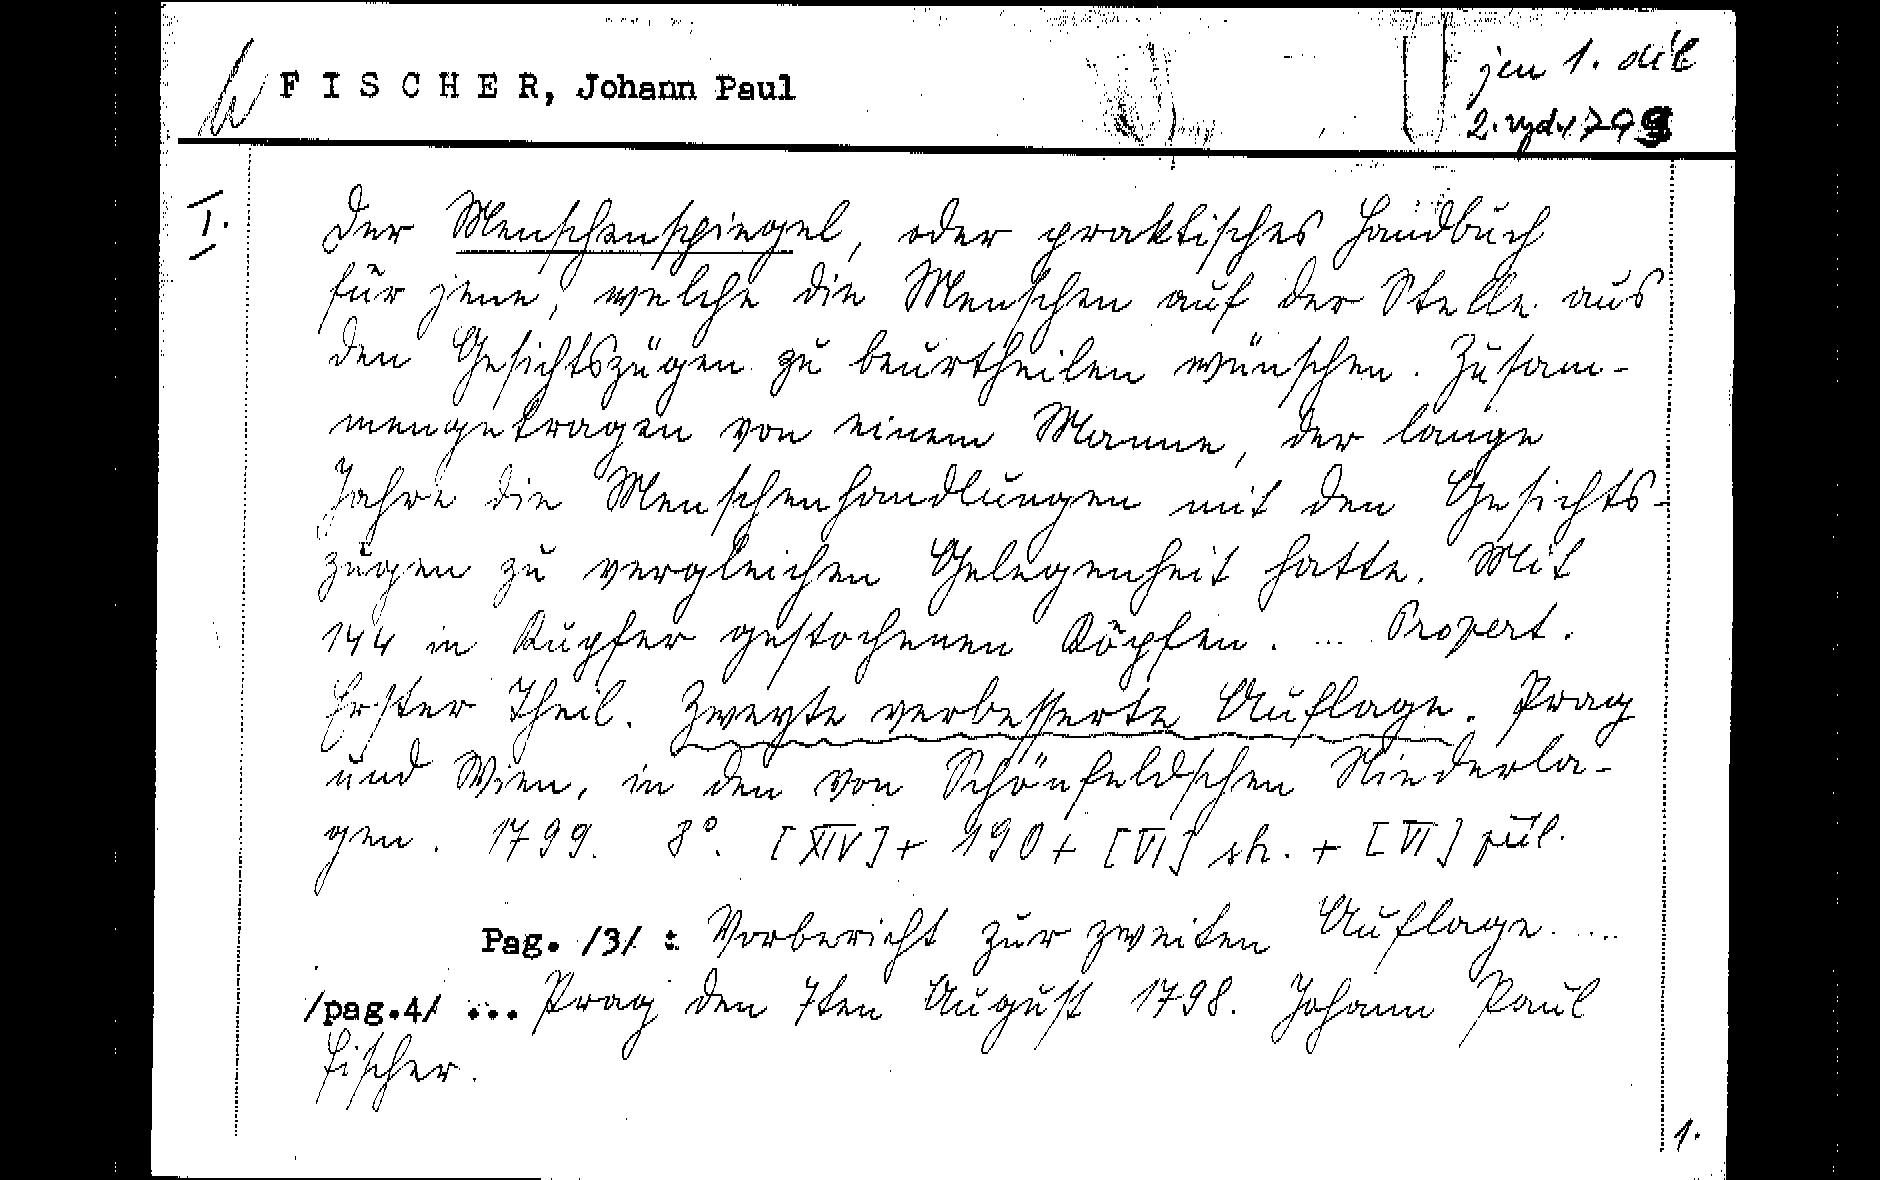 F I S C H E R, Johann Paul
jen 1. díl
2. vyd. 1799
I.
Der Menschenspiegel, oder praktisches Handbuch
für jene, welche die Menschen auf der Stelle aus
den Gesichtszügen zu beurtheilen wünschen. Zusam-
mengetragen von einem Manne, der lange
Jahre die Menschenhandlungen mit den Gesichts-
zügen zu vergleichen Gelegenheit hatte. Mit
144 in Kupfer gestochenen Köpfen. ... Propert.
Erster Theil. Zweyte verbesserte Auflage. Prag
und Wien, in den von Schönfeldschen Niederla-
gen. 1799. 8°. [XIV] + 190 + [VI] str. + [VI] příl.
Pag. /3/ : Vorbericht zur zweiten Auflage. ...
/pag.4/ ... Prag den 7ten August 1798. Johann Paul
Fischer.
1.